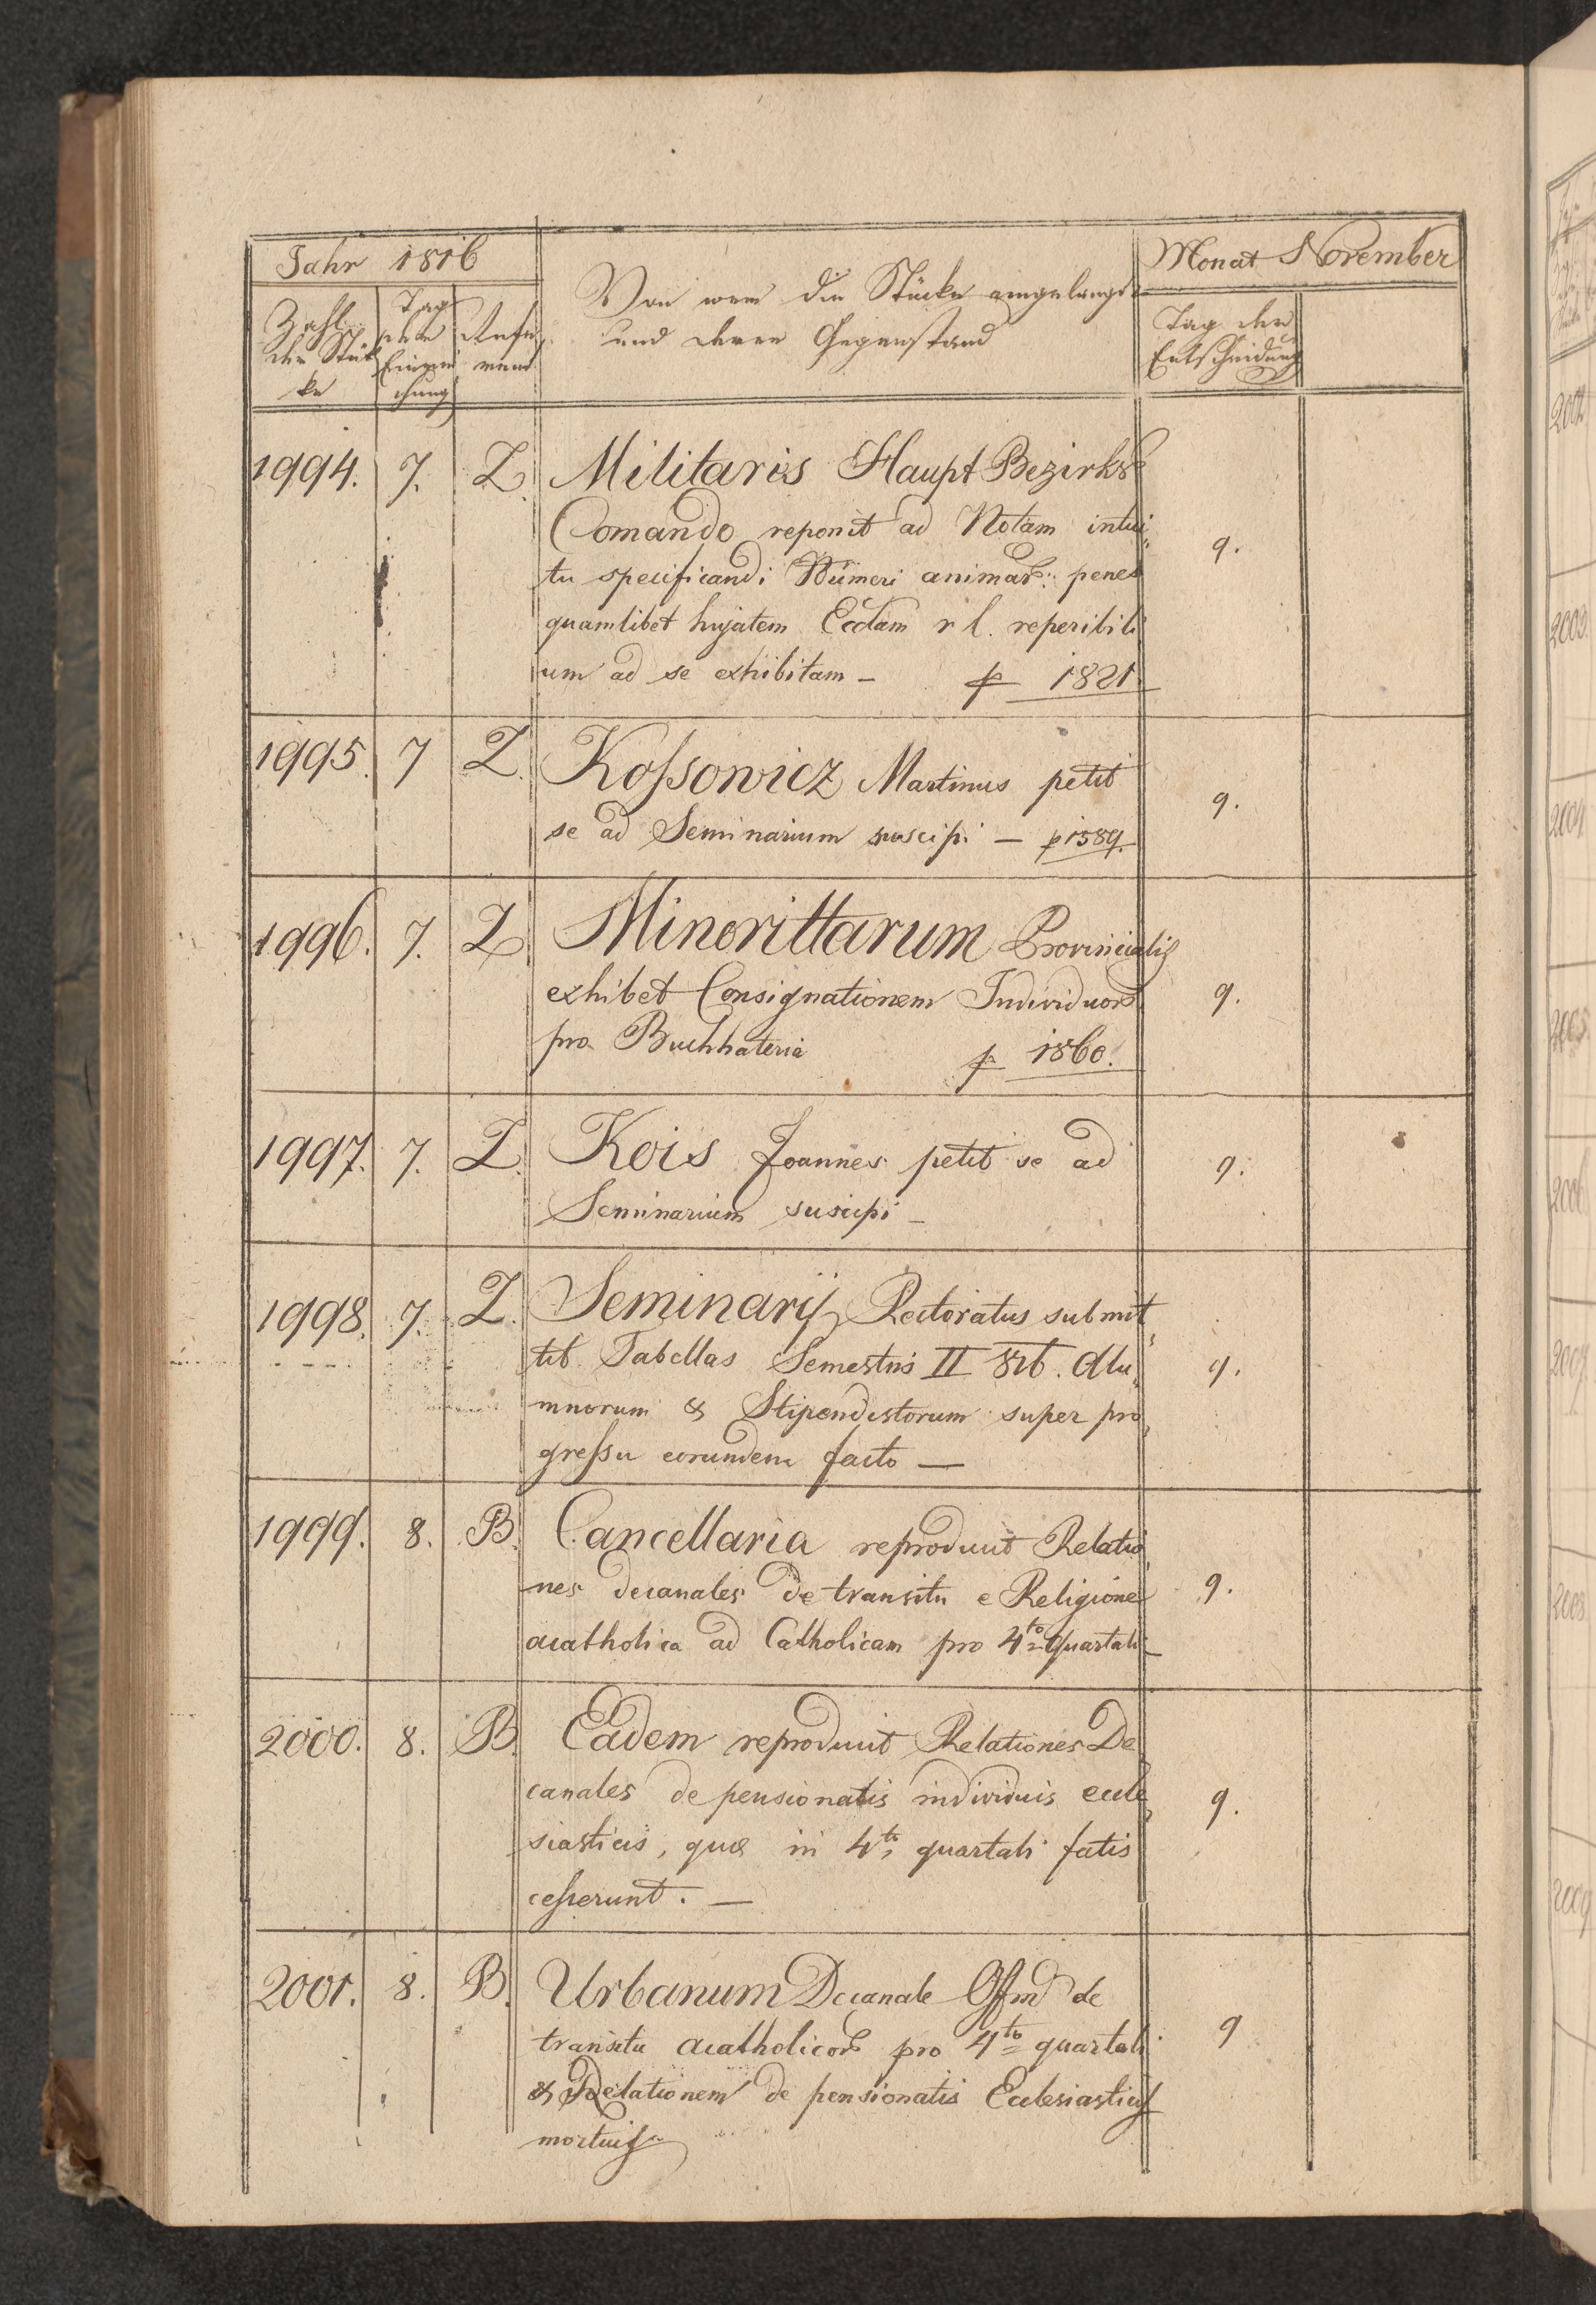 Jahr 1816
Monat November
Zahl der Stücke
Tag der Einreichung
Referent
Von wem die Stücke eingelangt
und deren Gegenstand
Tag der Entscheidung
1994. 7. Z. Militaris Haupt Bezirks
Comando reponit ad Notam intui„
tu specificandi Numeri animar: penes
quamlibet hujatem Eccl̃am r l. reperibili
um ad se exhibitam – p 1821.
9.
1995. 7 Z. Kossowicz Martinus petit
se ad Seminarium suscipi — p 1589.
9.
1996. 7. Z. Minorittarum Provincialis
exhibet Consignationem Individuor
pro Buchhateria p 1860.
9.
1997. 7. Z. Kois Joannes petit se ad
Seminarium suscipi –
9.
1998. 7. Z. Seminarij Rectoratus submit„
tit Tabellas Semestris II Alu„
mnorum & Stipendistorum super pro„
gressu eorundem facto —
9.
1999. 8. B. Cancellaria reproducit Relatio
nes decanales de transitu e Religione
acatholica ad Catholicam pro 4to quartali
9.
2000. 8. B. Eadem reproducit Relationes De
canales de pensionatis individuis eccle„
siasticis, quæ in 4to quartali fatis
cesserunt. —
9.
2001. 8. B. Urbanum Decanale Offm de
transitu acatholicor pro 4to quartali
& Relationem de pensionatis Ecclesiasticis
mortuis
9
2002
2003.
2004
2005.
2006
2007
2008
2009